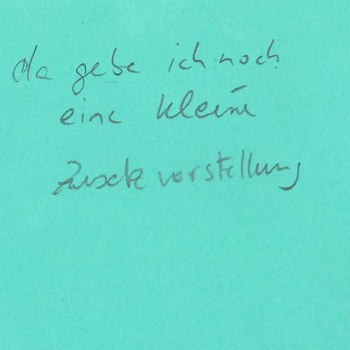 da gebe ich noch
eine kleine
Zusatzvorstellung